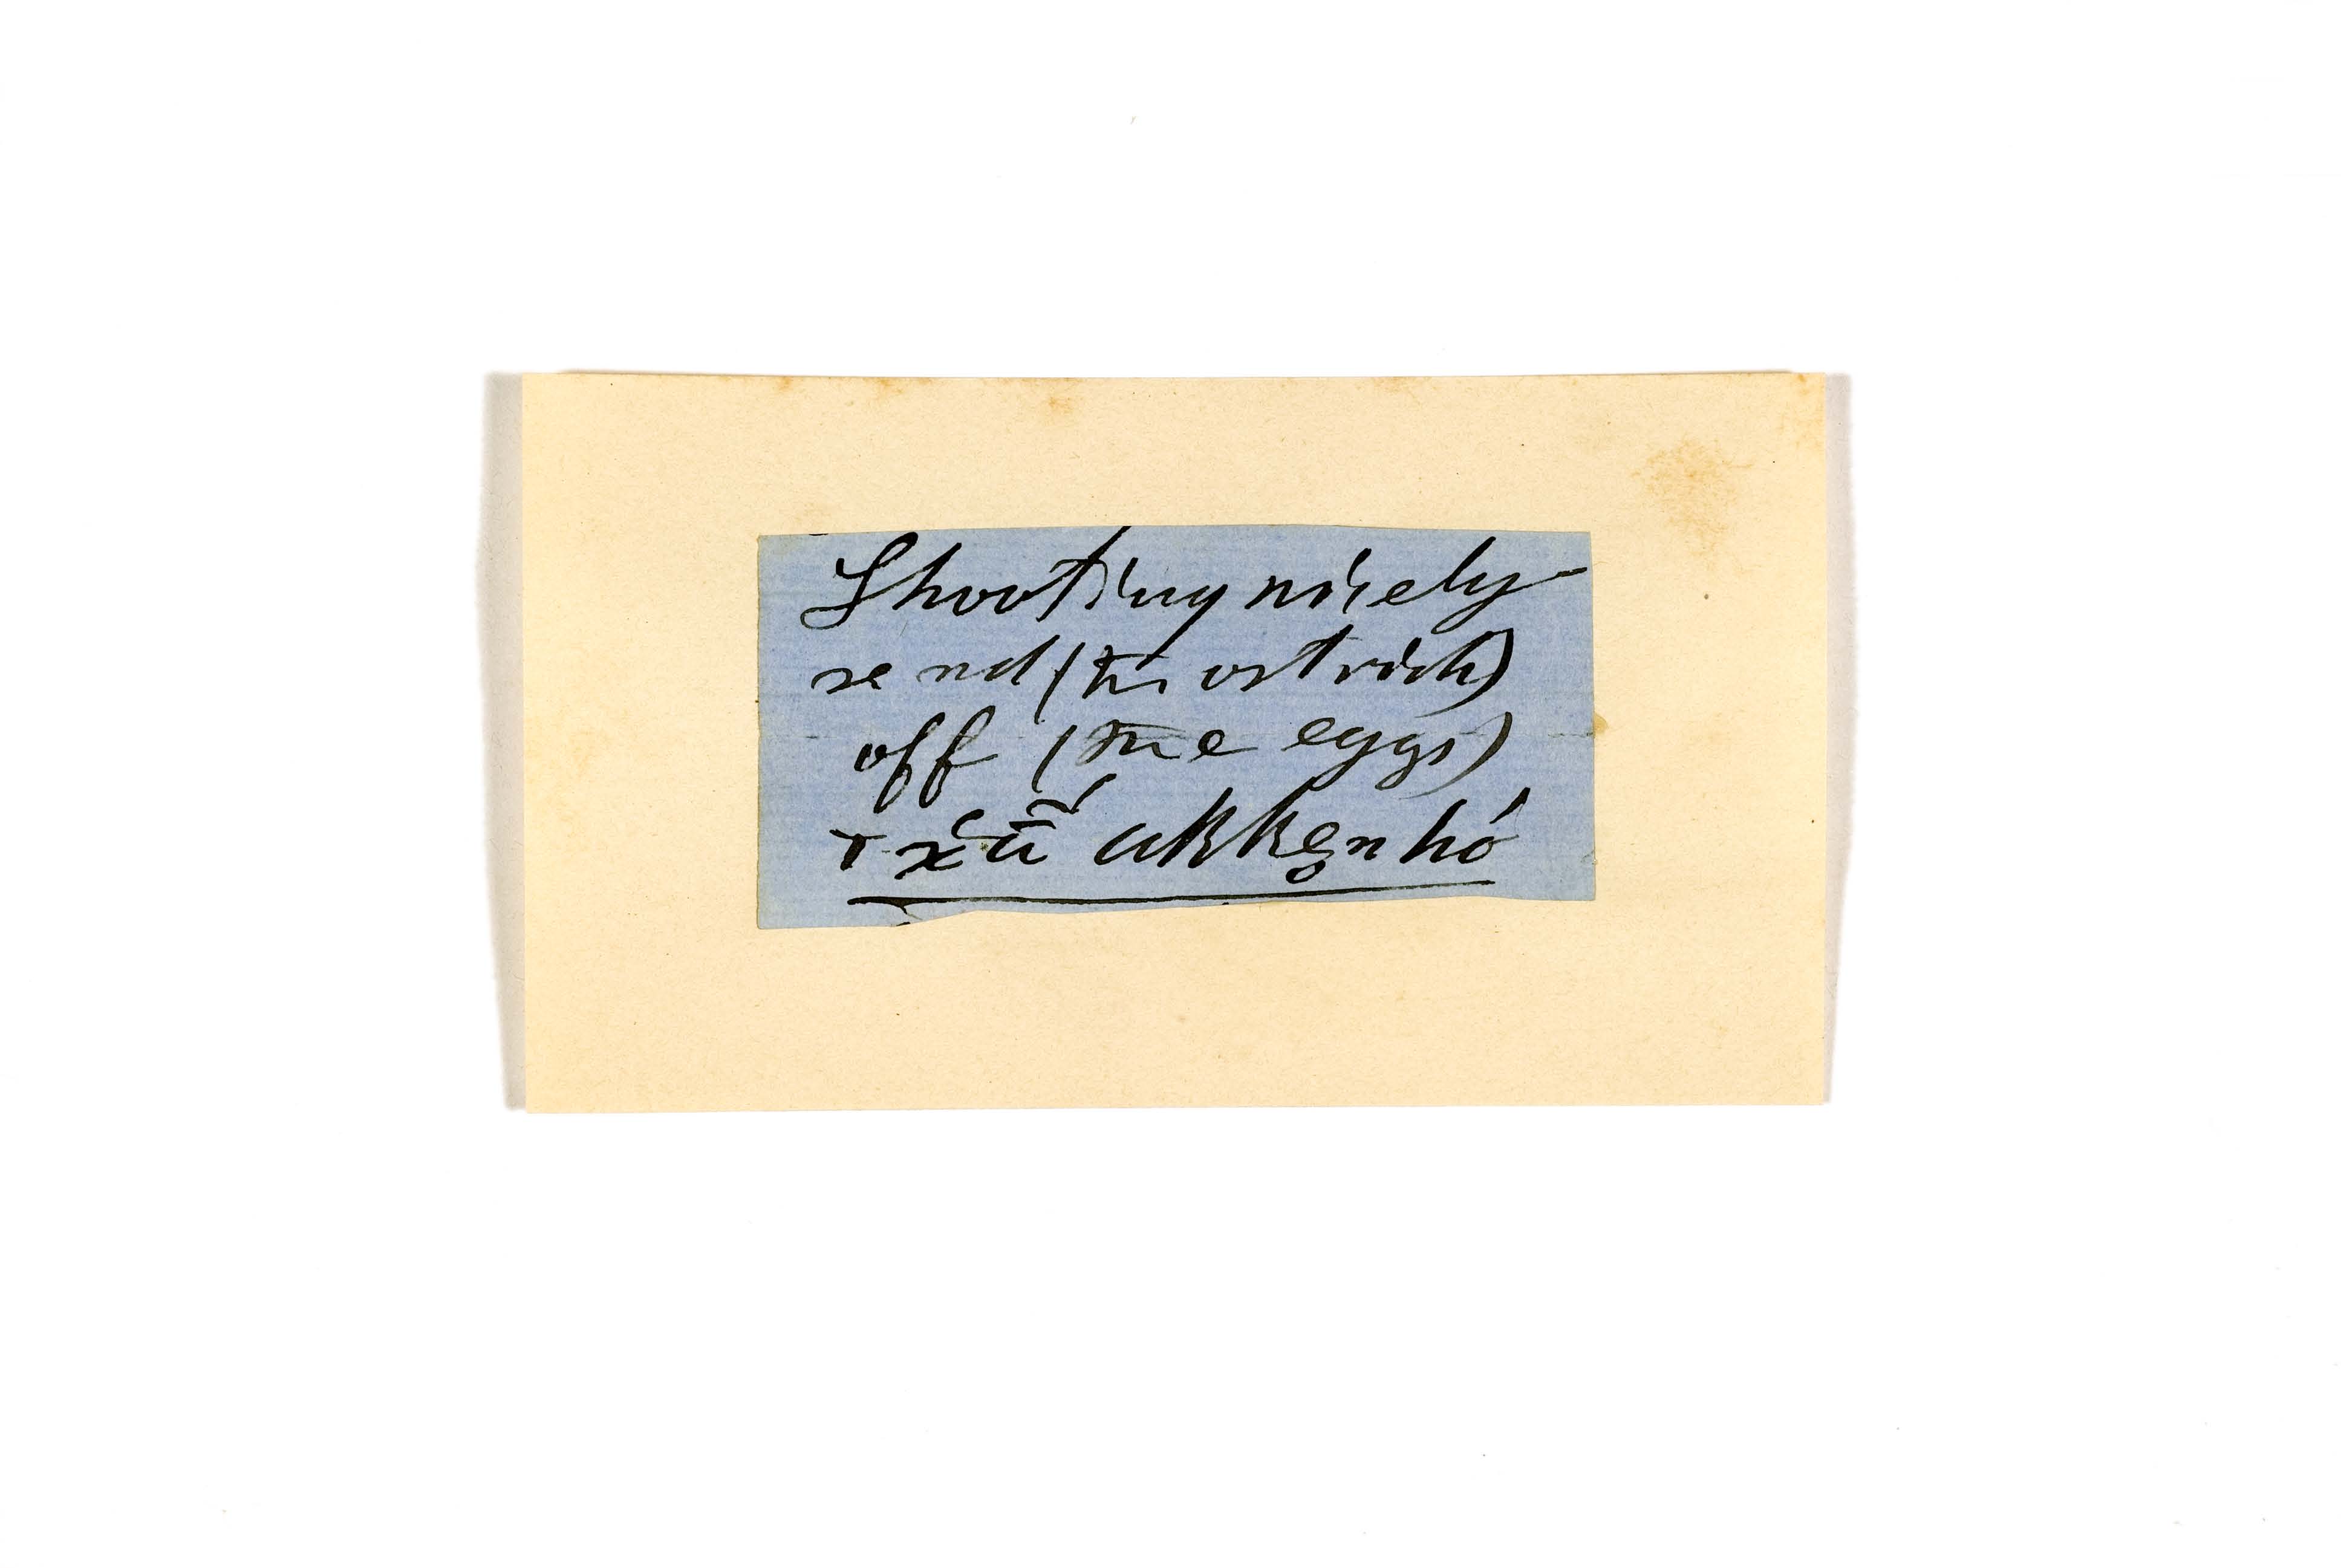 Shooting nicely
send (the ostrich)
off (the eggs)
τ χ́ũ̄ ukkenhó